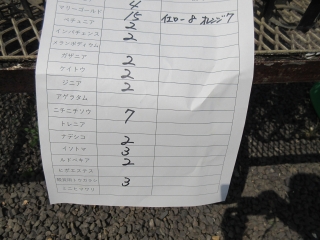 4
マリーゴールド 15 イエロー8 オレンジ7
ペチュニア 2
インパチェンス 2
メランポジウム
ガザニア 2
ケイトウ 2
ジニア 2
アゲラタム
ニチニチソウ 7
トレニア
ナデシコ 2
イソトマ 3
ルドベキア 2
ミニヒマワリ